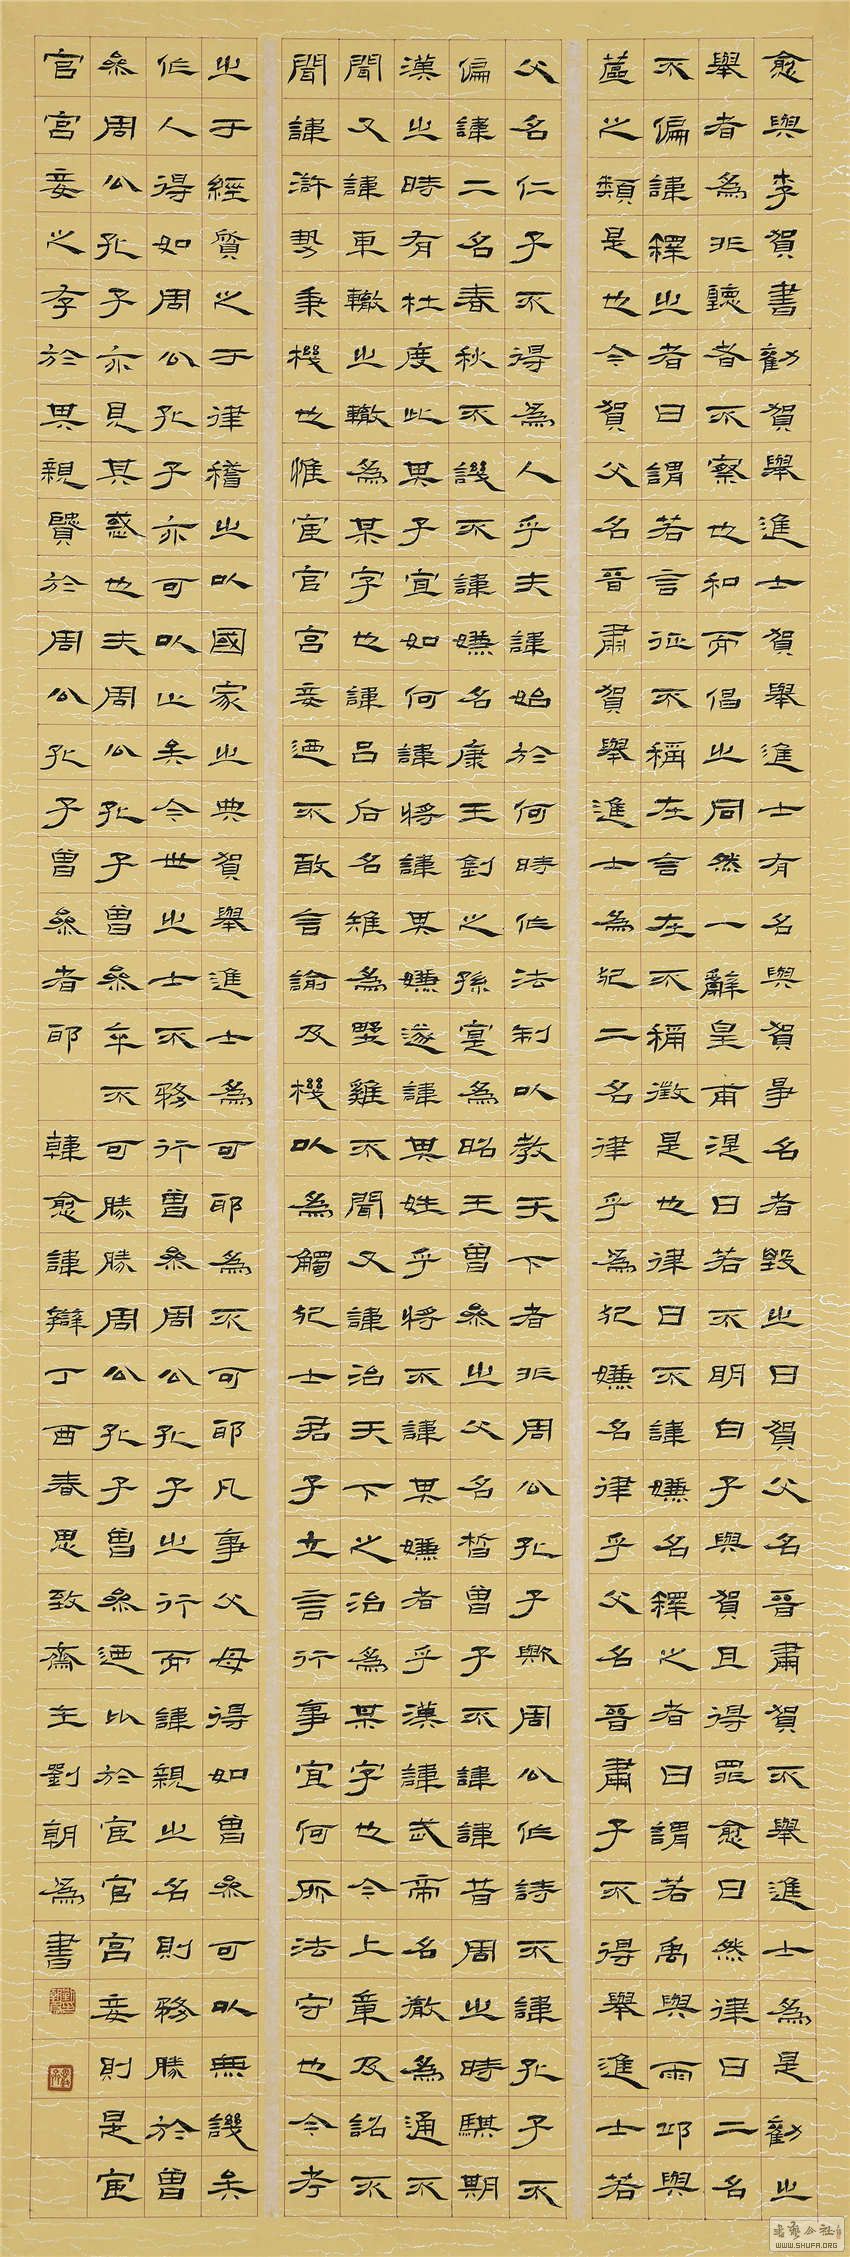 愈與李賀書勸賀舉進士賀舉進士有名與賀爭名者毀之曰賀父名晉肅賀不舉進士為是勸之
舉者為非聽者不察也和而倡之同然一辭皇甫湜曰若不明白子與賀且得罪愈曰然律曰二名
不偏諱釋之者曰謂若言征不稱在言在不稱徵是也律曰不諱嫌名釋之者曰謂若禹與雨邱與
蓲之類是也今賀父名晉肅賀舉進士為犯二名律乎為犯嫌名律乎父名晉肅子不得舉進士若
父名仁子不得為人乎夫諱始於何時作法制以教天下者非周公孔子歟周公作詩不諱孔子不
偏諱二名春秋不譏不諱嫌名康王釗之孫實為昭王曾參之父名晳曾子不諱諱昔周之時騏期
漢之時有杜度此其子宜如何諱將諱其嫌遂諱其姓乎將不諱其嫌者乎漢諱武帝名徹為通不
聞又諱車轍之轍為某字也諱呂后名雉為野雞不聞又諱治天下之治為某字也今上章及詔不
聞諱滸勢秉機也惟宦官宮妾迺不敢言諭及機以為觸犯士君子立言行事宜何所法守也今考
之于經質之于律稽之以國家之典賀舉進士為可耶為不可耶凡事父母得如曾參可以無譏矣
作人得如周公孔子亦可以止矣今世之士不務行曾參周公孔子之行而諱親之名則務勝於曾
參周公孔子亦見其惑也夫周公孔子曾參卒不可勝勝周公孔子曾參迺比於宦官宮妾則是宦
官宮妾之孝於其親賢於周公孔子曾參者耶 韓愈諱辯丁酉春思致齋主劉朝為書
WWW.SHUFA.ORG